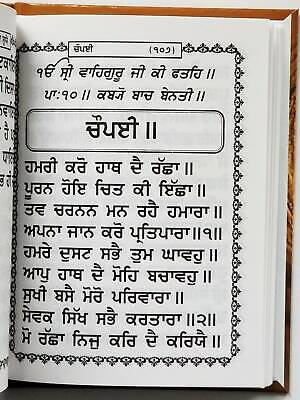 ਚੌਪਈ (੧੦੭)
ੴ ਸ੍ਰੀ ਵਾਹਿਗੁਰੂ ਜੀ ਕੀ ਫਤਹਿ॥
ਪਾ: ੧੦॥ ਕਬ੍ਯੋ ਬਾਚ ਬੇਨਤੀ॥
ਚੌਪਈ॥
ਹਮਰੀ ਕਰੋ ਹਾਥ ਦੈ ਰੱਛਾ॥
ਪੂਰਨ ਹੋਇ ਚਿਤ ਕੀ ਇੱਛਾ॥
ਤਵ ਚਰਨਨ ਮਨ ਰਹੈ ਹਮਾਰਾ॥
ਅਪਨਾ ਜਾਨ ਕਰੋ ਪ੍ਰਤਿਪਾਰਾ॥੧॥
ਹਮਰੇ ਦੁਸਟ ਸਭੈ ਤੁਮ ਘਾਵਹੁ॥
ਆਪੁ ਹਾਥ ਦੈ ਮੋਹਿ ਬਚਾਵਹੁ॥
ਸੁਖੀ ਬਸੈ ਮੋਰੋ ਪਰਿਵਾਰਾ॥
ਸੇਵਕ ਸਿੱਖ ਸਭੈ ਕਰਤਾਰਾ॥੨॥
ਮੋ ਰੱਛਾ ਨਿਜੁ ਕਰਿ ਦੈ ਕਰਿਯੈ॥